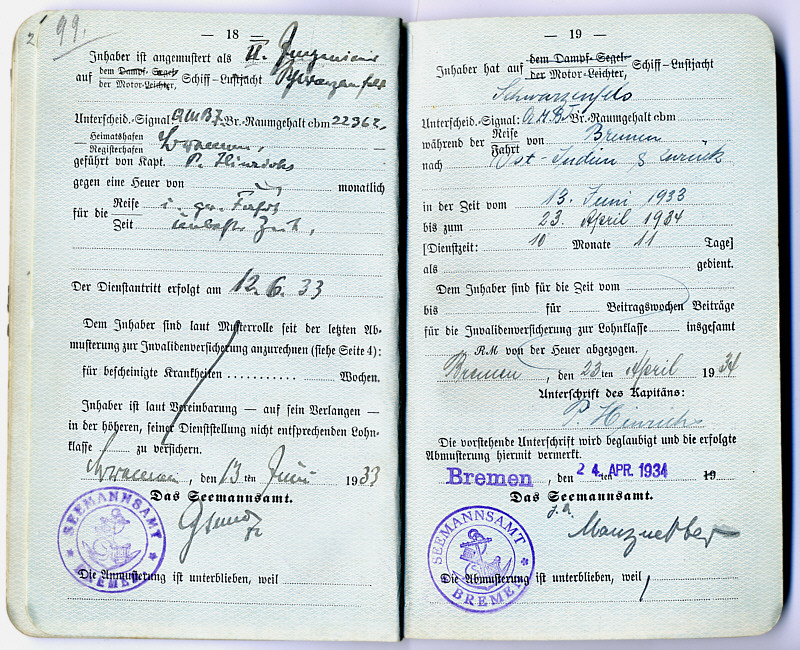 99.
— 18 —
Inhaber ist angemustert als II. Ingenieur
auf dem Dampf- Segel- der Motor-Leichter, Schiff-Lustjacht Schwarzenfels
Unterscheid.-Signal: Br.-Raumgehalt cbm 22362,
Heimatshafen
Registerhafen Bremen,
geführt von Kapt. P. Hinrichs
gegen eine Heuer von monatlich
für die Reise i. gr. Fahrt
Zeit unbest. Zeit,
Der Dienstantritt erfolgt am 12. 6. 33
Dem Inhaber sind laut Musterrolle seit der letzten Ab-
musterung zur Invalidenversicherung anzurechnen (siehe Seite 4):
für bescheinigte Krankheiten . . . . . . . . . . . Wochen.
Inhaber ist laut Vereinbarung — auf sein Verlangen —
in der höheren, seiner Dienststellung nicht entsprechenden Lohn-
klasse zu versichern.
Bremen, den 13ten Juni 1933
Das Seemannsamt.
SEEMANNSAMT BREMEN
Die Anmusterung ist unterblieben, weil
— 19 —
Inhaber hat auf dem Dampf- Segel- der Motor-Leichter, Schiff-Lustjacht
Schwarzenfels
Unterscheid.-Signal: Br.-Raumgehalt cbm
während der Reise Fahrt von Bremen
nach Ost-Indien & zurück
in der Zeit vom 13. Juni 1933
bis zum 23. April 1934
[Dienstzeit: 10 Monate 11 Tage]
als gedient.
Dem Inhaber sind für die Zeit vom
bis für Beitragswochen Beiträge
für die Invalidenversicherung zur Lohnklasse insgesamt
RM von der Heuer abgezogen.
Bremen, den 23ten April 1934
Unterschrift des Kapitäns:
P. Hinrichs
Die vorstehende Unterschrift wird beglaubigt und die erfolgte
Abmusterung hiermit vermerkt.
Bremen, den 24. APR. 1934 ten 19
Das Seemannsamt.
SEEMANNSAMT BREMEN
Die Abmusterung ist unterblieben, weil